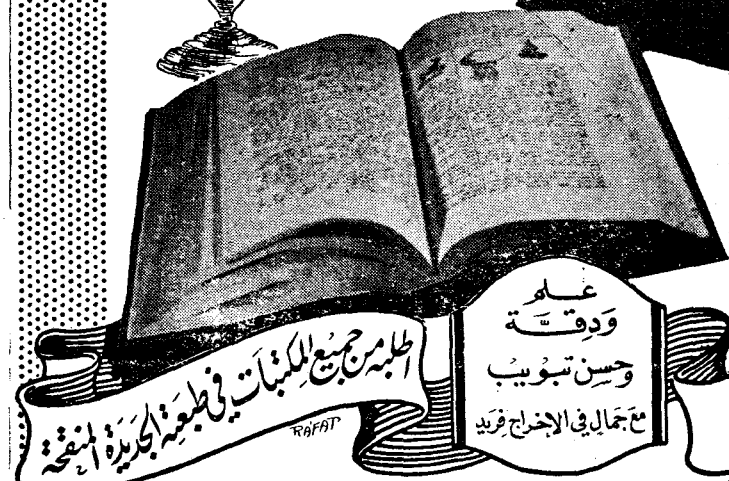 علم
وَدِقَّة
وَحسن تبْويبْ
مَعَ جَمال في الإخراج فريد
اطلبه من جميع المكتبات في طبعته الجديدة المنقحة
RAFAT